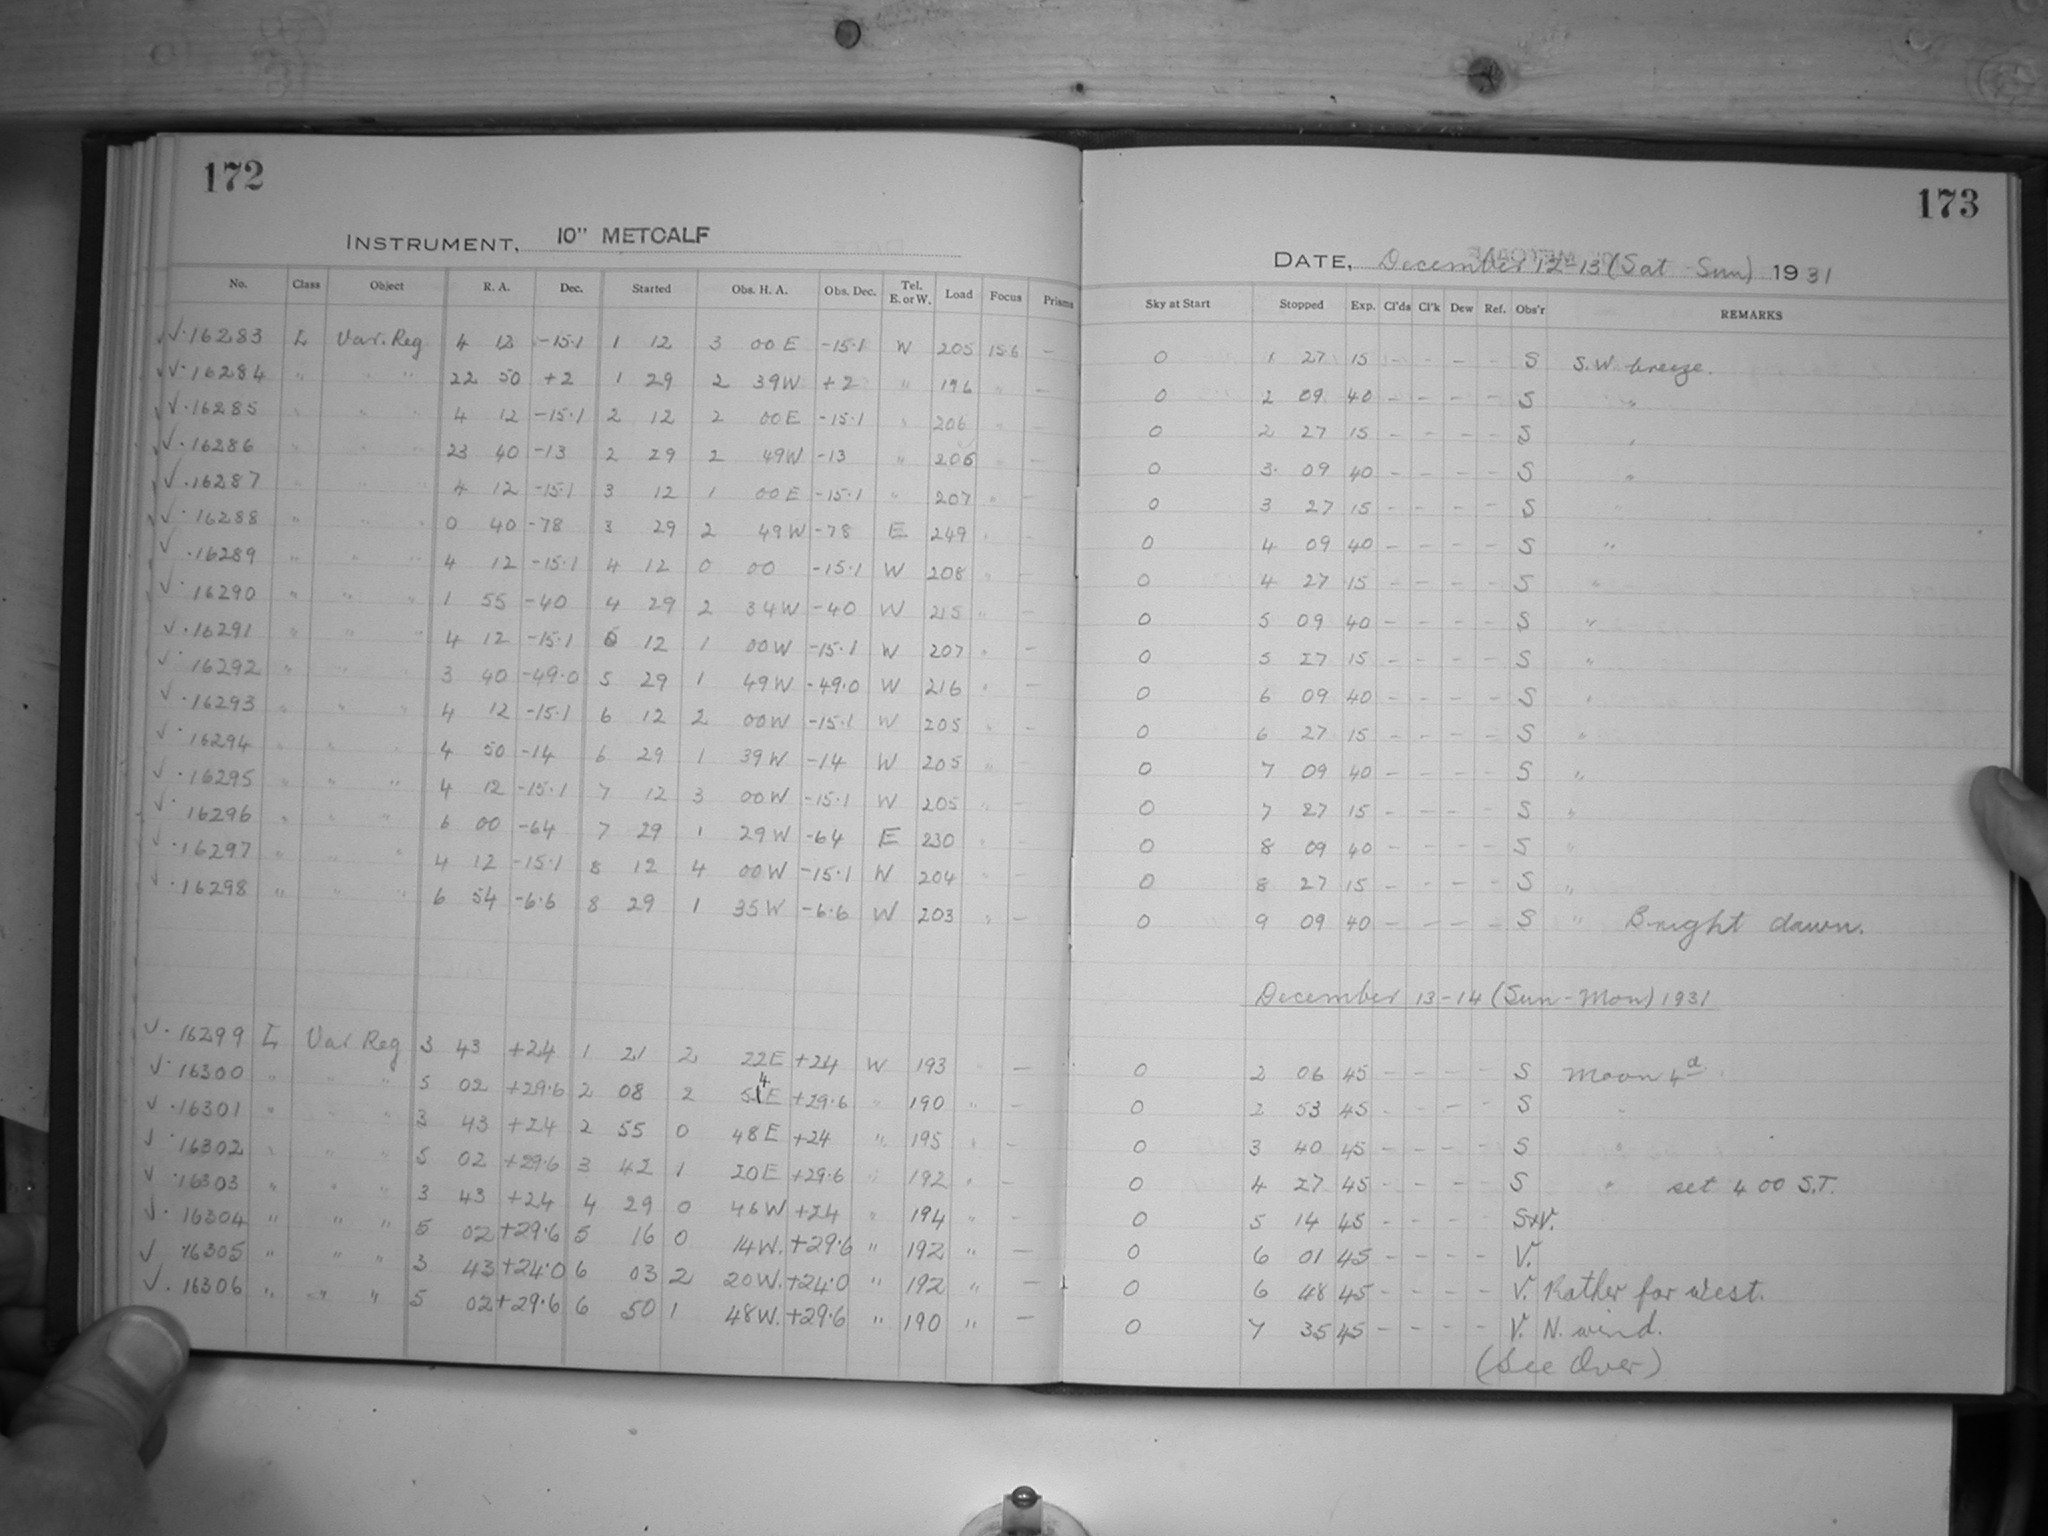 172
INSTRUMENT, 10" METCALF
No. Class Object R. A. Dec. Started Obs. H. A. Obs. Dec. Tel. E. or W. Load Focus Prisms
√ · 16283 L Var. Reg 4 12 -15.1 1 12 3 00 E -15.1 W 205 15.6 —
√ · 16284 " " " 22 50 +2 1 29 2 39 W +2 " 196 " —
√ · 16285 " " " 4 12 -15.1 2 12 2 00 E -15.1 " 206 " —
√ · 16286 " " " 23 40 -13 2 29 2 49 W -13 " 206 " —
√ · 16287 " " " 4 12 -15.1 3 12 1 00 E -15.1 " 207 " —
√ · 16288 " " " 0 40 -78 3 29 2 49 W -78 E 249 " —
√ · 16289 " " " 4 12 -15.1 4 12 0 00 -15.1 W 208 " —
√ · 16290 " " " 1 55 -40 4 29 2 34 W -40 W 215 " —
√ · 16291 " " 4 12 -15.1 5 12 1 00 W -15.1 W 207 " —
√ · 16292 " " 3 40 -49.0 5 29 1 49 W -49.0 W 216 " —
√ · 16293 " " " 4 12 -15.1 6 12 2 00 W -15.1 W 205 " —
√ · 16294 " " " 4 50 -14 6 29 1 39 W -14 W 205 " —
√ · 16295 " " " 4 12 -15.1 7 12 3 00 W -15.1 W 205 " —
√ · 16296 " " " 6 00 -64 7 29 1 29 W -64 E 230 " —
√ · 16297 " " " 4 12 -15.1 8 12 4 00 W -15.1 W 204 " —
√ · 16298 " " " 6 54 -6.6 8 29 1 35 W -6.6 W 203 " —
√ · 16299 L Var Reg 3 43 +24 1 21 2 22 E +24 W 193 " —
√ · 16300 " " " 5 02 +29.6 2 08 2 54 E +29.6 " 190 " —
√ · 16301 " " " 3 43 +24 2 55 0 48 E +24 " 195 " —
√ · 16302 " " " 5 02 +29.6 3 42 1 20 E +29.6 " 192 " —
√ · 16303 " " " 3 43 +24 4 29 0 46 W +24 " 194 " —
√ · 16304 " " " 5 02 +29.6 5 16 0 14 W. +29.6 " 192 " —
√ 16305 " " " 3 43 +24.0 6 03 2 20 W. +24.0 " 192 " —
√ · 16306 " " " 5 02 +29.6 6 50 1 48 W. +29.6 " 190 " —
173
DATE, December 12-13 (Sat - Sun) 1931
Sky at Start Stopped Exp. Cl'ds Cl'k Dew Ref. Obs'r REMARKS
0 1 27 15 - - - - S S.W. breeze.
0 2 09 40 - - - - S "
0 2 27 15 - - - - S "
0 3 09 40 - - - - S "
0 3 27 15 - - - - S "
0 4 09 40 - - - - S "
0 4 27 15 - - - - S "
0 5 09 40 - - - - S "
0 5 27 15 - - - - S "
0 6 09 40 - - - - S "
0 6 27 15 - - - - S "
0 7 09 40 - - - - S "
0 7 27 15 - - - - S "
0 8 09 40 - - - - S "
0 8 27 15 - - - - S "
0 9 09 40 - - - - S " Bright dawn.
December 13-14 (Sun - Mon) 1931
0 2 06 45 - - - - S Moon 4d
0 2 53 45 - - - - S "
0 3 40 45 - - - - S "
0 4 27 45 - - - - S " set 4 00 S.T.
0 5 14 45 - - - - S+V.
0 6 01 45 - - - - V.
0 6 48 45 - - - - V. Rather far West.
0 7 35 45 - - - - V. N. wind.
(See Over)